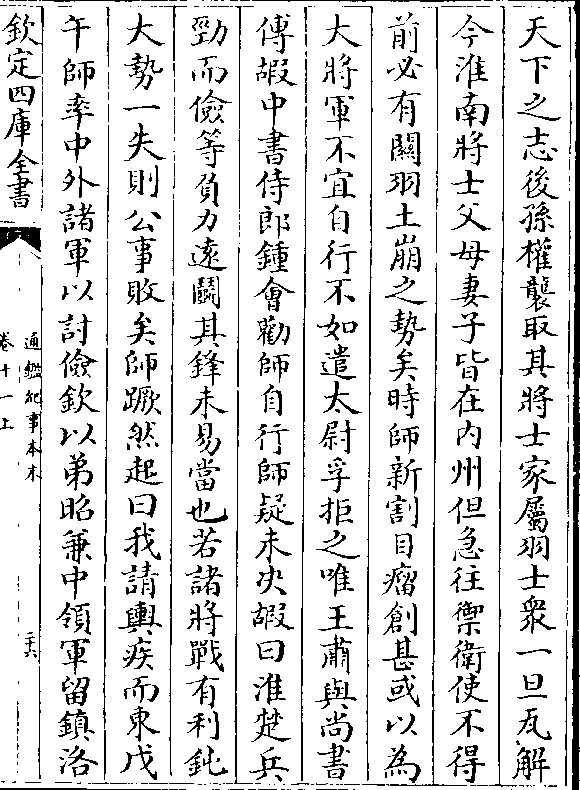 天下之志後孫權襲取其將士家屬羽士衆一旦瓦解
今淮南將士父母妻子皆在内州但急往禦衛使不得
前必有關羽土崩之勢矣時師新割目瘤創甚或以為
大將軍不宜自行不如遣太尉孚拒之唯王肅與尚書
傅嘏中書侍郎鍾會勸師自行師疑未决嘏曰淮楚兵
勁而儉等負力逺鬭其鋒未易當也若諸將戰有利鈍
大勢一失則公事敗矣師蹶然起曰我請輿疾而東戊
午師率中外諸軍以討儉欽以弟昭兼中領軍留鎮洛
欽定四庫全書
通鑑紀事本末
卷十一上
二十六